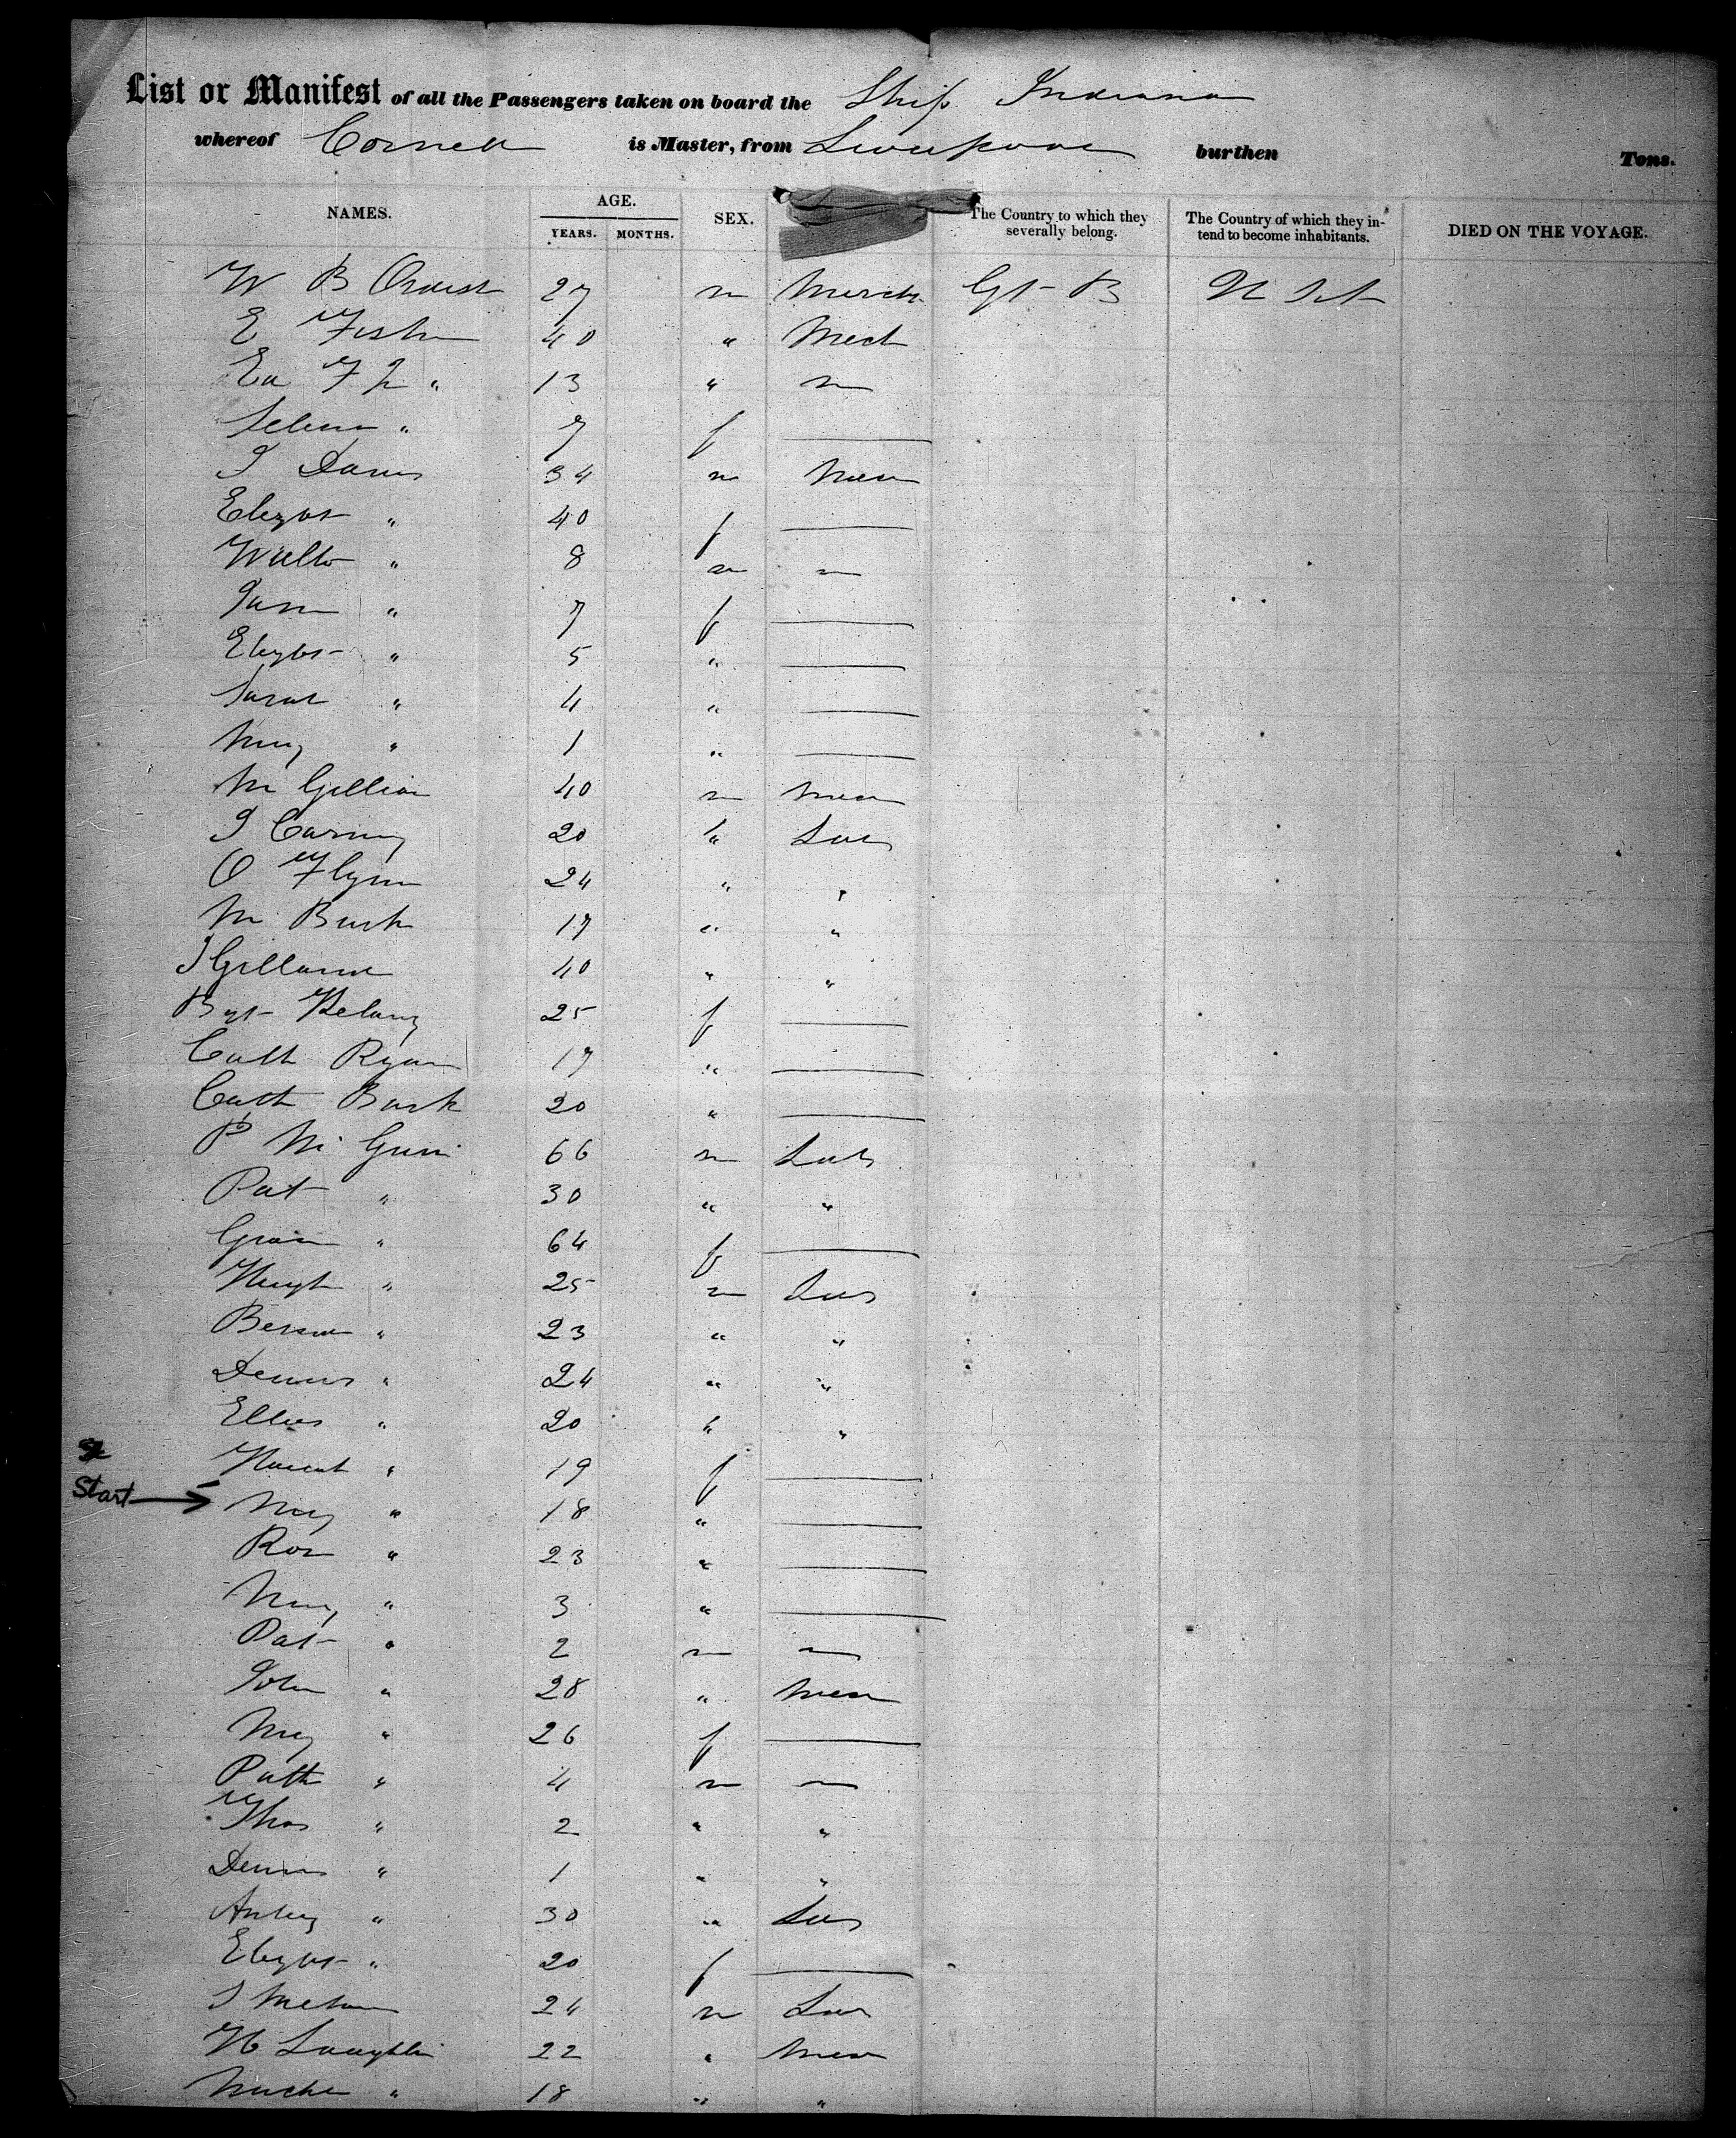 List or Manifest of all the Passengers taken on board the Ship Indiana
whereof Cornell is Master, from Liverpool burthen Tons.
NAMES. AGE. YEARS. MONTHS. SEX. The Country to which they severally belong. The Country of which they intend to become inhabitants. DIED ON THE VOYAGE.
W B 27 m Merch Gt B U St
E Fisher 40 " Mech
13 "
Selena " 7 f
J Davis 34 m Mech
Elizbt " 40 f
Walter " 8 m
Jane " 7 f
Elizbt " 5 "
Sarah " 4 "
Mary " 1 "
M Gillian 40 m Mech
J Carney 20 " Lab
O Flynn 24 " "
M Burk 17 " "
J 40 " "
Bgt 25 f
Cath Ryan 17 "
Cath Burk 20 "
P Mc 66 m Lab
Pat " 30 " "
" 64 f
Hugh " 25 m Lab
" 23 " "
Dennis " 24 " "
" 20 " "
" 19 f
Start → Mary " 18 "
Rose " 23 "
Mary " 3 "
Pat " 2 m
John " 28 " Mech
Mary " 26 f
Patk " 4 m
Thos " 2 " "
Dennis " 1 " "
" 30 " Lab
Elizbt " 20 f
J 24 m Lab
H Laughlin 22 " Mech
" 18 " "